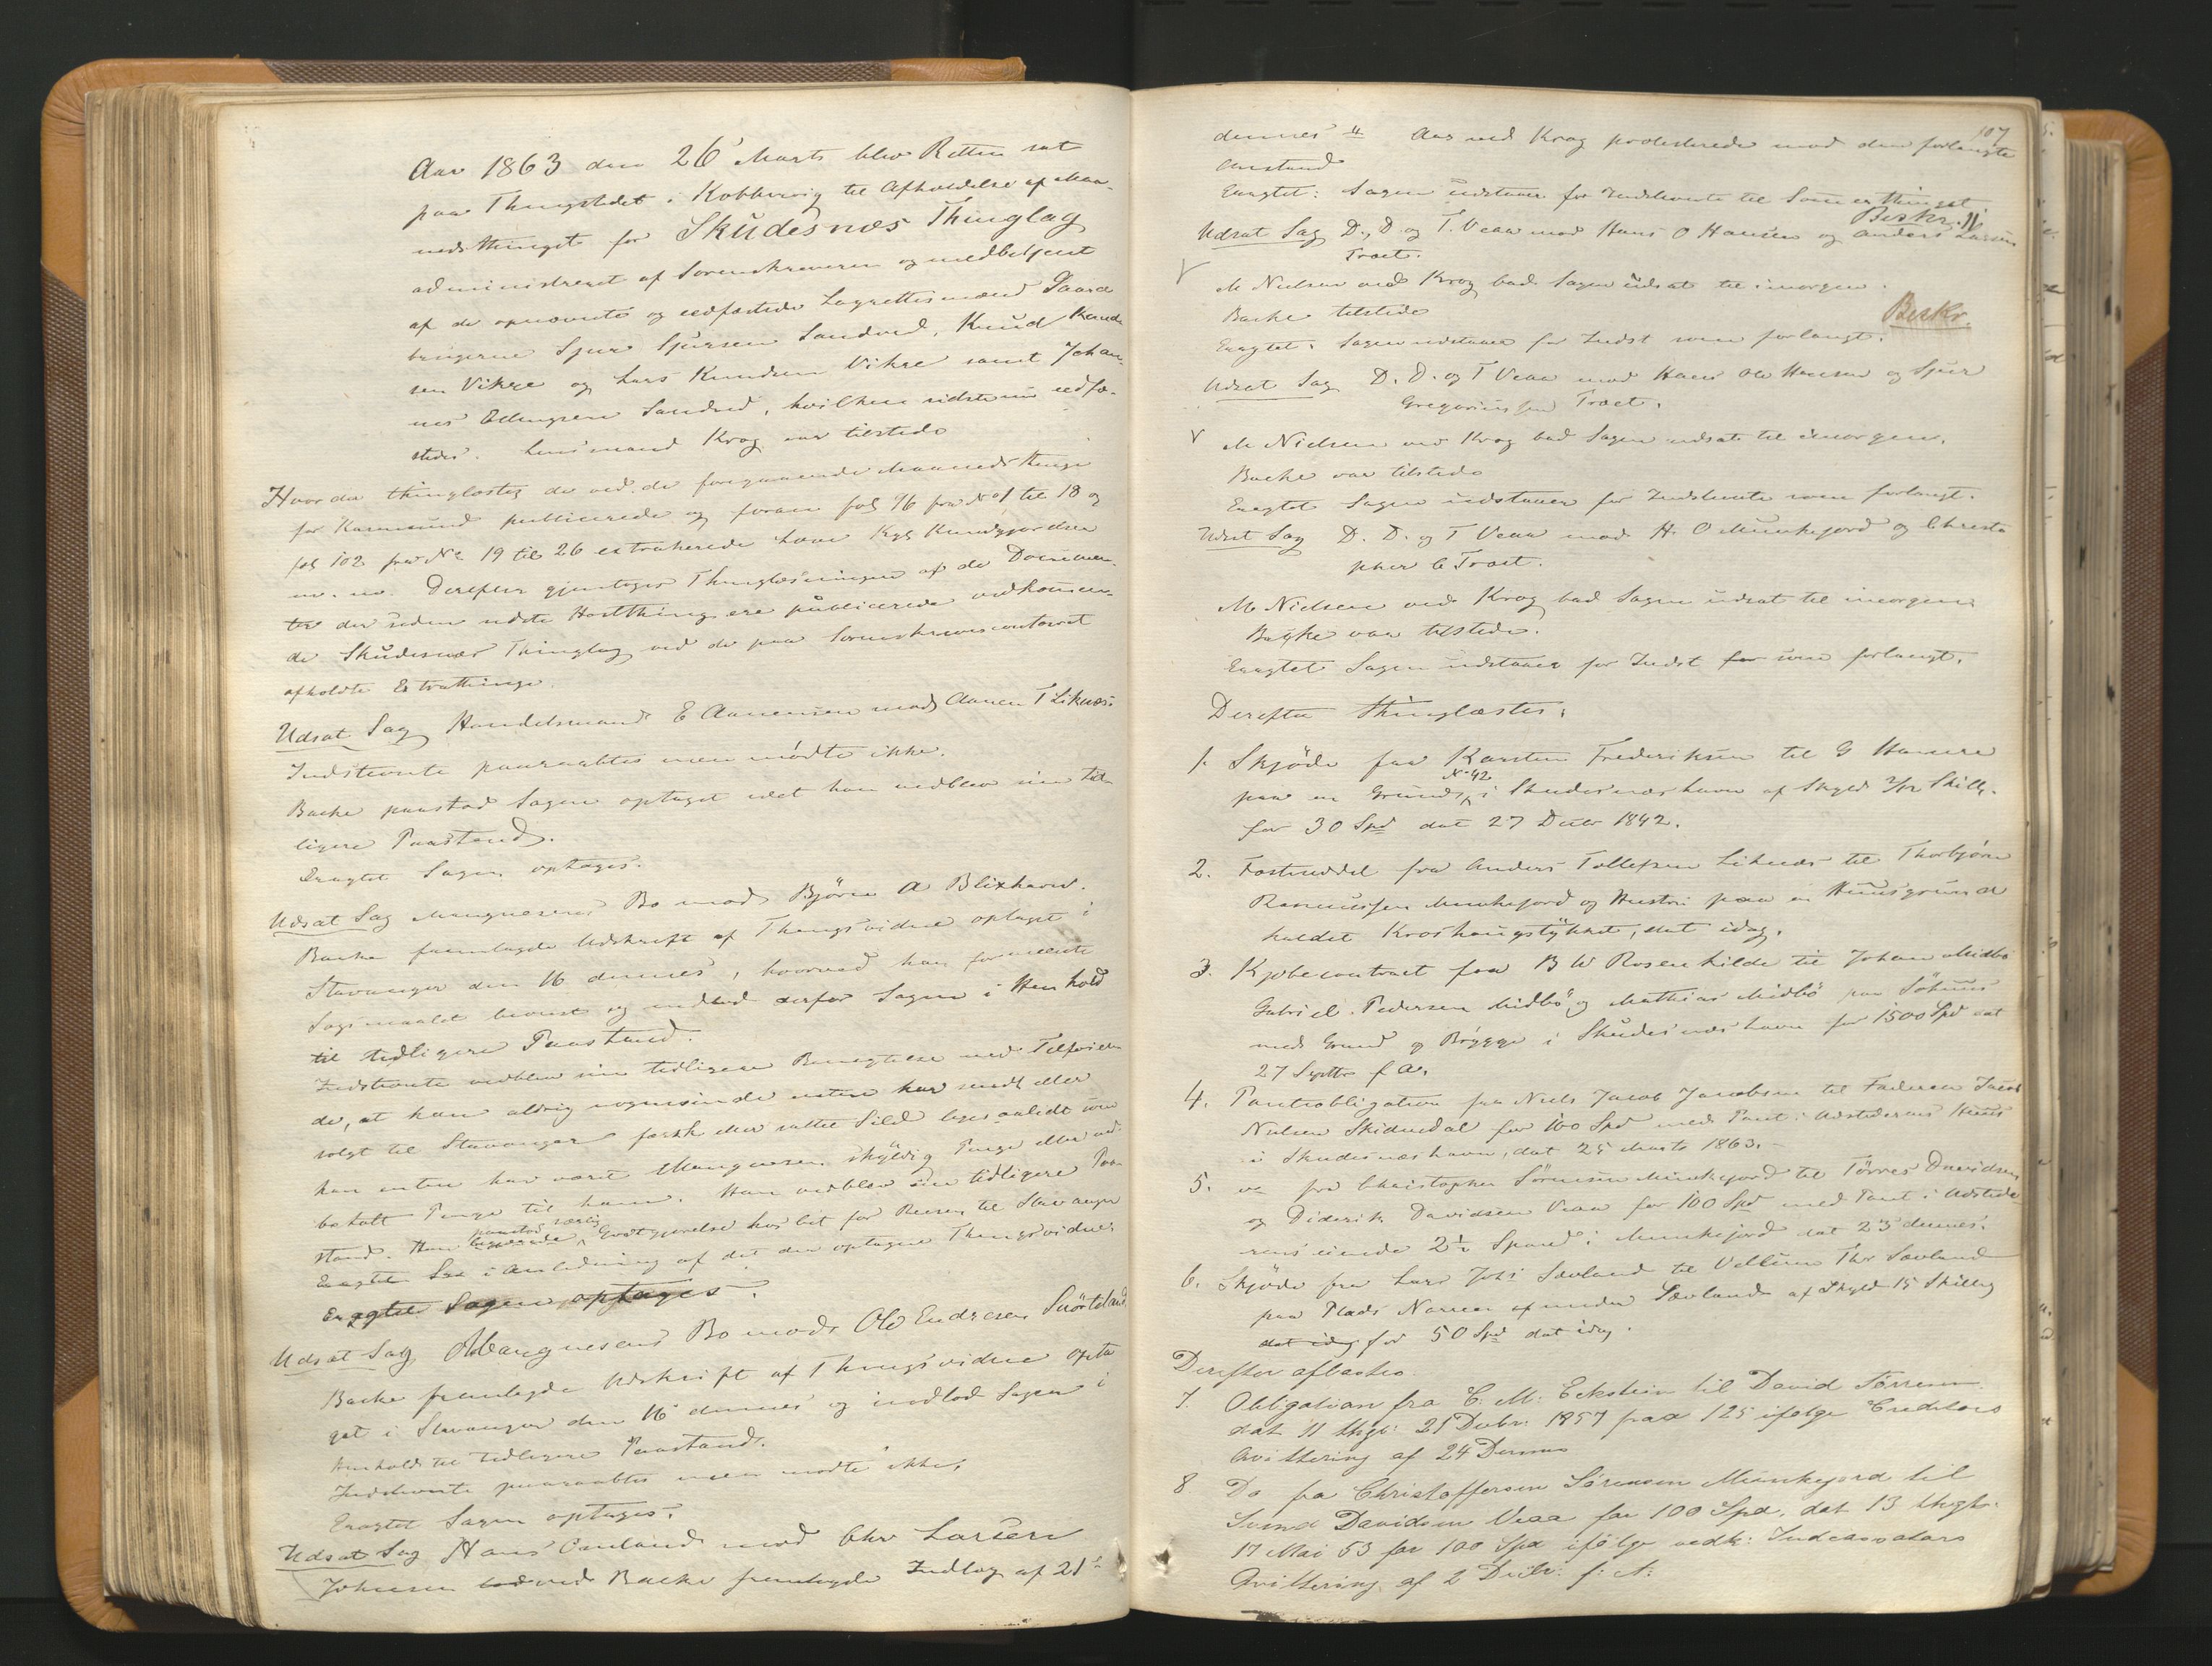 Aar 1863 den 26' Marts blev Retten sat
paa Thingstedet i Kobbervig til Afholdelse af Maa-
nedsthinget for Skudesnæs Thinglag
administreret af Sorenskriveren og medbetjent
af de opnævnte og edfæstede Lagrettesmænd Gaard
brugerne Sjur Sjursen Sandved, Knud Knud
sen Vikre og Lars Knudsen Vikre samt Johan-
nes Ellingsen Sandved, hvilken sidste nu edfæ-
stedes. Lensmand Krog var tilstede
Hvor da thinglæstes de ved de foregaaende Maanedsthinge
for Karmsund publicerede og foran fol 96 fra No 1 til 18 og
fol 102 fra No 19 til 26 extraherede Love Kgl Kundgjørelser
m. m. Derefter gjentoges Thinglæsningen af de Documen-
ter der siden sidste Høstthing ere publicerede vedkommen-
de Skudesnæs Thinglag ved de paa Sorenskrivercontoret
afholdte Extrathinge.
Udsat Sag Handelsmand E Aanensen mod Aanen T Liknæs.
Indstevnte paaraabtes men mødte ikke.
Backe paastod Sagen optaget idet han vedblev sin tid
ligere Paastand.
Eragtet Sagen optages.
Udsat Sag Mangnesens Bo mod Bjørn A Blixhavn.
Backe fremlagde Udskrift af Thingsvidne optaget i
Stavanger den 16 dennes, hvorved han formeente
Sagsmaalet beviist og indlod derfor Sagen i Henhold
til tidligere Paastand.
Indstevnte vedblev sin tidligere Benægtelse med Tilføien
de, at han aldrig nogensinde enten har sendt eller
solgt til Stavanger fersk eller saltet Sild ligesaalidt som
han enten har været Mangnesen skyldig Penge eller ud
betalt Penge til ham. Han vedblev sin tidligere Paa
stand. Han paastod særlig Godtgjørelse hos bet for Reisen til Stavanger
Eragtet Sag i Anledning af det der optagne Thingsvidne.
Eragtet Sagen optages.
Udsat Sag Mangnesens Bo mod Ole Endresen Snørteland
Backe fremlagde Udskrift af Thingsvidne opta
get i Stavanger den 16 dennes og indlod Sagen i
Henhold til tidligere Paastand.
Indstevnte paaraabtes men mødte ikke.
Eragtet Sagen optages.
Udsat Sag Hans Omland mod Chr Larsen
Johnsen ved Backe fremlagde Indlæg af 21d
107
dennes " Aar ved Krog protesterede mod den forlangte
Anstand
Eragtet: Sagen udstaaer for Indstevnte til Sommerthinget
Beskr. 11
Udsat Sag D., D og T. Veaa mod Hans O Hansen og Anders Larsen
Tract.
V M Nielsen ved Krog bad Sagen udsat til imorgen.
Backe tilstede
Beskr.
Eragtet: Sagen udstaaer for Indst som forlangt.
Udsat Sag D. D. og T Veaa mod Hans Ole Hansen og Sjur
Gregoriussen Tract.
V M Nielsen ved Krog bad Sagen udsat til imorgen.
Backe var tilstede
Eragtet Sagen udstaaer for Indstevnte som forlangt.
Udsat Sag D. D. og T Veaa mod H. O Munkejord og Christo
pher C Tract.
M Nielsen ved Krog bad Sagen udsat til imorgen
Backe var tilstede.
Eragtet Sagen udstaaer for Indst for som forlangt.
Derefter thinglæstes:
1. Skjøde fra Karsten Frederiksen til G Hansen
paa en Grund No 42 i Skudesnæshavn af Skyld 2/12 Skill.
for 30 Spd dat 27 Decbr 1842.
2. Fæsteseddel fra Anders Tollefsen Liknæs til Thorbjørn
Rasmussen Munkejord og Hustru paa en Huusgrund
kaldet Kroshaugstykket, dat idag.
3. Kjøbecontract fra B W Rosenkilde til Johan Midbø
Gabriel Pedersen Midbø og Mathias Midbø paa Søhuus
med Grund og Brygge i Skudesnæshavn for 1500 Spd dat
27 Septbr f A.
4. Panteobligation fra Niels Jacob Jacobsen til Faderen Jacob
Nielsen Skidnedal for 100 Spd med Pant i Udstederens Huus
i Skudesnæshavn, dat 25 Marts 1863.
5. do fra Christopher Sørensen Munkejord til Tørres Davidsen
og Diderik Davidsen Veaa for 100 Spd med Pant i Udstede
rens eiende 2½ Spand i Munkejord dat 23 dennes.
6. Skjøde fra Lars Johs Sævland til Vellum Thor Sævland
paa Plads Narren af under Sævland af Skyld 15 Skilling
dat idag for 50 Spd dat idag.
Derefter aflæstes
7. Obligation fra C. M. Eckstein til David Sørensen
dat 11 thgl: 21 Decbr: 1857 paa 125 ifølge Creditors
Qvittering af 24 Dennes
8 Do fra Christoffersen Sørensen Munkejord til
Svend Davidsen Veaa for 100 Spd. dat 13 thgl:
17 Mai 53 for 100 Spd ifølge vedk: Indcasvators
Qvittering af 2 Decbr: f: A: